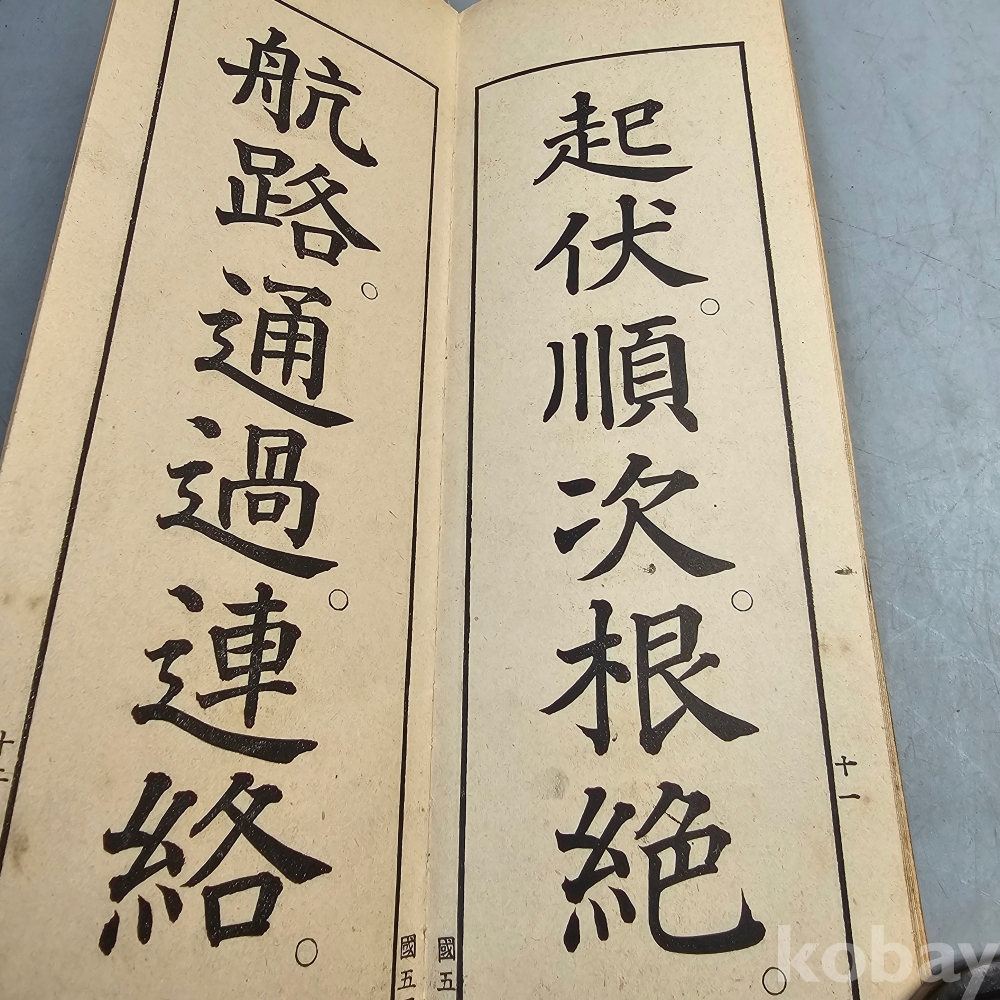 起伏。順次。根絶。
十一
國五
航路。通過。連絡。
十二
國五
kobay